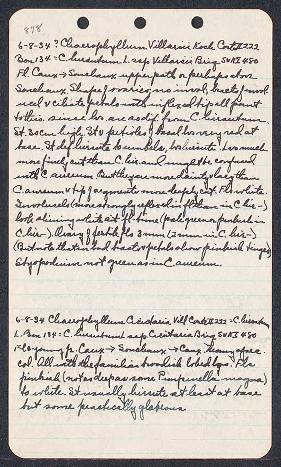 878
6-8-34 ? Chaerophyllum Villarsii Koch Coste II 222
Bon 134 = C. hirsutum L. ssp Villarsii Briq
Fl. Caux → Sonchaux upper path or perhaps above
Sonchaux. Shape of ovaries, no invol, bracts of invol
ucel & ciliate petals with inflexed tip all point
to this. since
St 30 cm high. St & petioles & basal lvs very red at
base. St def hirsute to umbels, lvs hirsute & so much
more finely cut than C. hir and might be confused
with C. aureum. But they are more dainty lacy than
C. aureum & tip segments more deeply cut. Fls white.
Involucels (more strongly reflexed in fl than in C. hir-)
look shining white at fl-time (pale green or pinkish in
C. hir-). Ovary of fertile fls 3 mm (2 mm in C. hir-)
(But note that in bud bracts & petals show pinkish tinge)
Stylopodium not green as in C. aureum.
6-8-34 Chaerophyllum Cicutaria, Vill Coste II 222 = C. hirsutum
L. Bon 134 = C. hirsutum L ssp Cicutaria Briq
Flowering fr. Caux → Sonchaux → Caux. Many specc.
col. All with the familiar broadish lobed lvs. Fls
pinkish (not as deep as some Pimpinella magna)
to white. St usually hirsute at least at base
but some practically glabrous